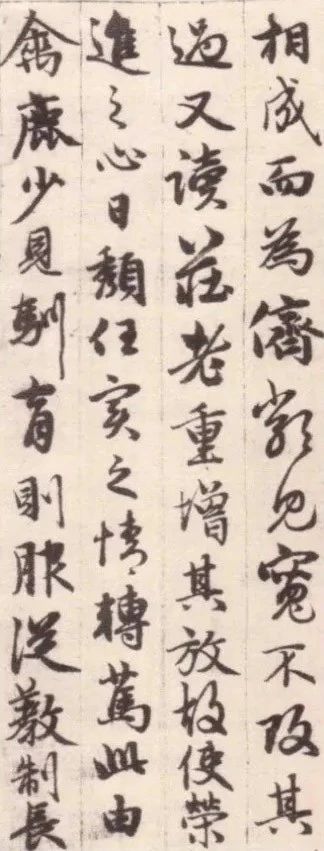 相成而為儕類見寬不攻其
過又讀莊老重增其放故使榮
進之心日頹任實之情轉篤此由
禽鹿少見馴育則服從教制長